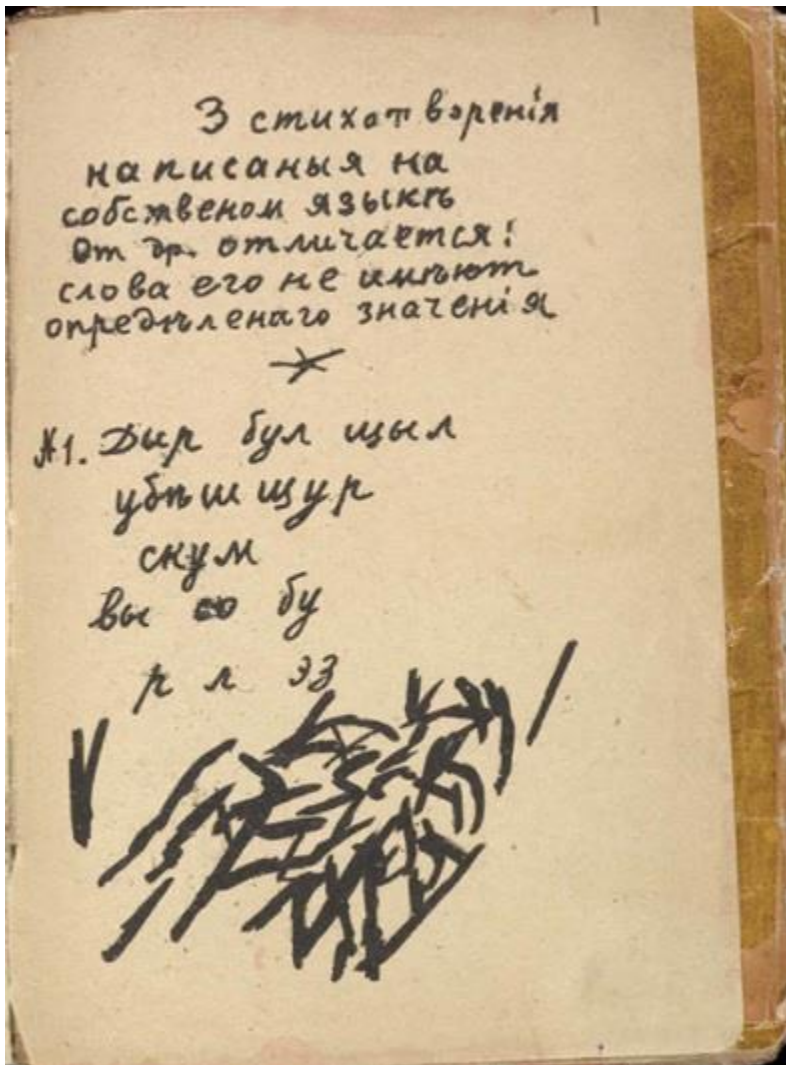 3 стихотворенiя
написаныя на
собственом языкѣ
от др. отличается:
слова его не имѣют
опредѣленаго значенiя
№1. Дыр бул щыл
убѣшщур
скум
вы со бу
р л эз